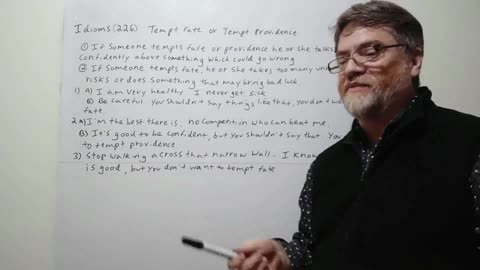 Idioms (226) Tempt Fate or Tempt Providence
① If someone tempts fate or providence he or she talks
confidently about something which could go wrong
② If someone tempts fate, he or she takes too many
risks or does something that may bring bad luck
1) A) I am very healthy I never get sick
B) Be careful you shouldn't say things like that, you don't
fate.
2 A) I'm the best there is, no competition who can beat me.
B) It's good to be confident, but you shouldn't say that
to tempt providence
3) Stop walking across that narrow wall. I know
is good, but you don't want to tempt fate